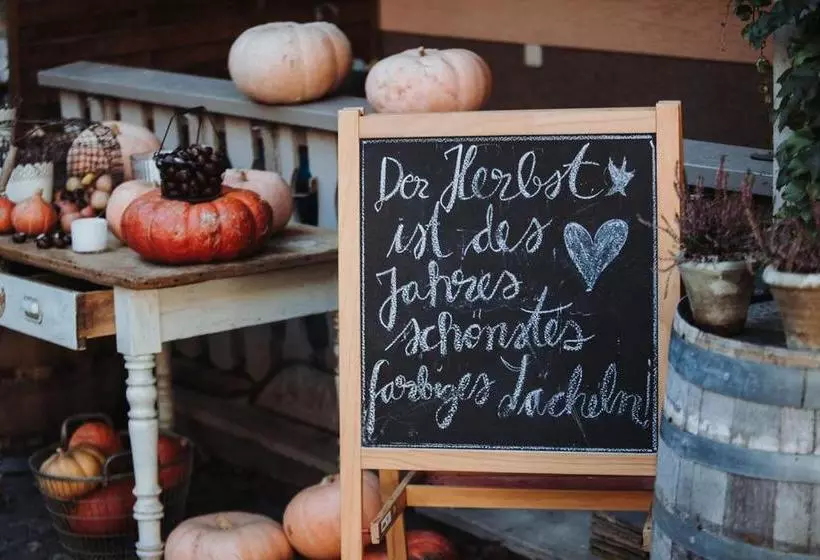 Der Herbst
ist des
Jahres
schönstes
farbiges Lächeln!